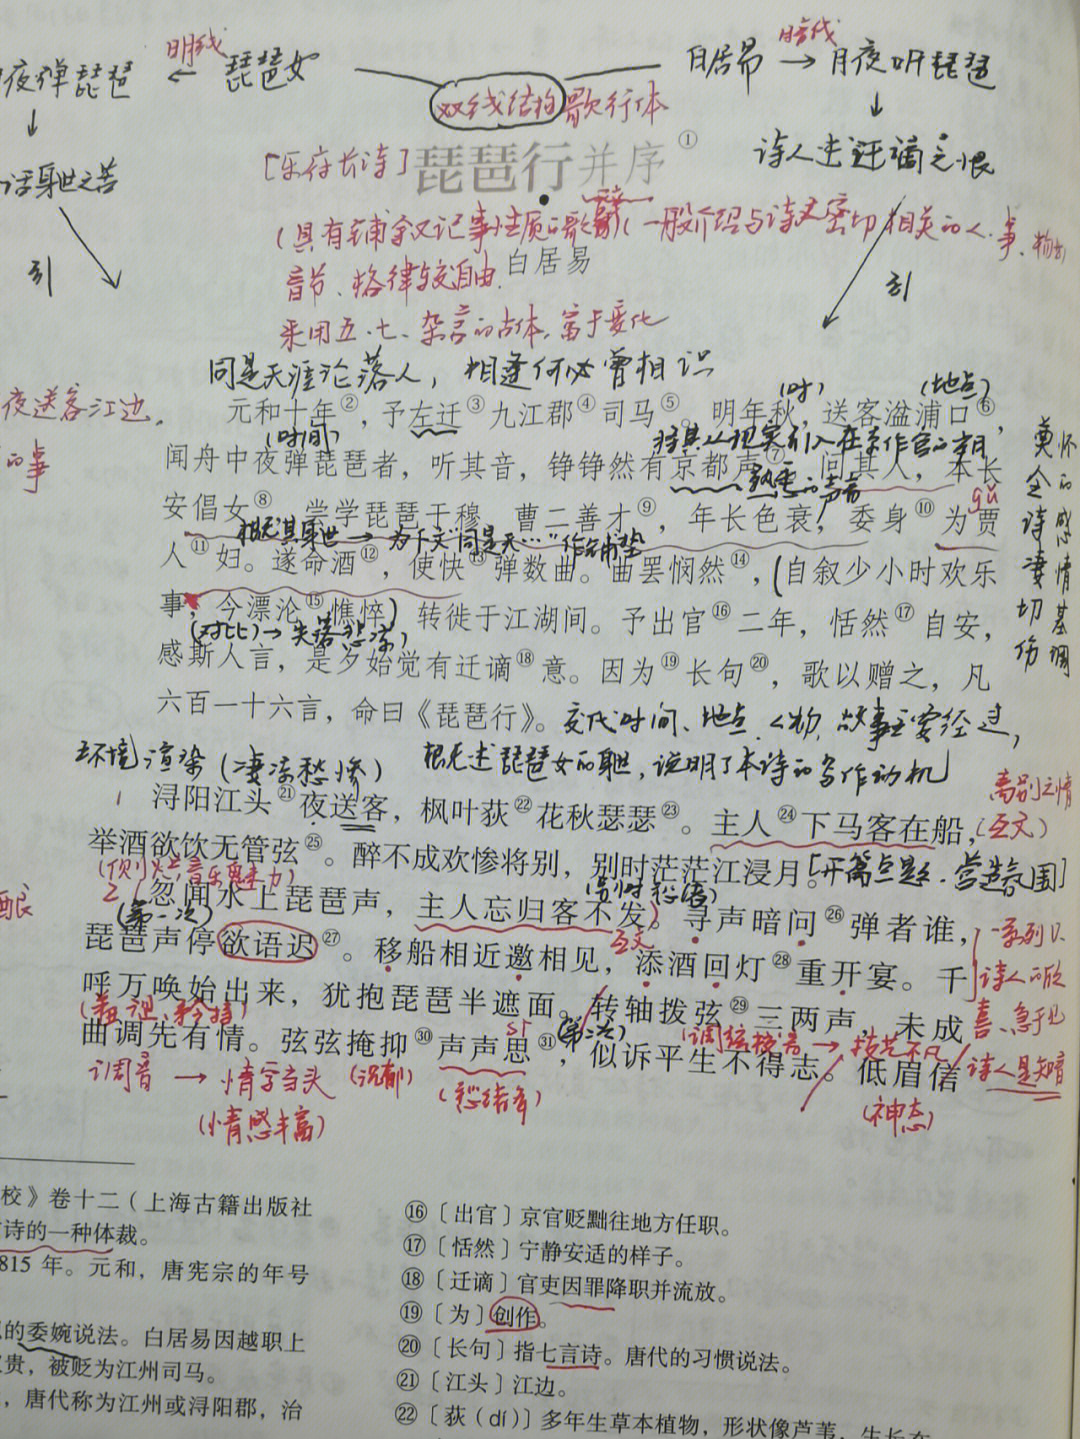 明线
暗线
夜弹琵琶 ← 琵琶女
白居易 → 月夜听琵琶
双线结构 歌行体
[乐府长诗] 琵琶行并序①
诗人 迁谪之恨
话身世之苦
音节、格律较自由.
白居易
引
引
采用五、七、杂言的古体,富于变化
同是天涯沦落人,相逢何必曾相识
(时)
(地点)
夜送客江边,
的事
元和十年②,予左迁③九江郡④司马⑤。明年秋,送客湓浦口⑥,
(时间)
闻舟中夜弹琵琶者,听其音,铮铮然有京都声⑦。问其人,本长
熟悉的声音
gǔ
安倡女⑧,尝学琵琶于穆、曹二善才⑨,年长色衰,委身⑩为贾
人⑪妇。遂命酒⑫,使快⑬弹数曲。曲罢悯然⑭,(自叙少小时欢乐
事,今漂沦⑮憔悴)转徙于江湖间。予出官⑯二年,恬然⑰自安,
(对比)→失落悲凉
感斯人言,是夕始觉有迁谪⑱意。因为⑲长句⑳,歌以赠之,凡
六百一十六言,命曰《琵琶行》。交代时间、地点、人物、故事主要经过,
概述琵琶女的身世,说明了本诗的写作动机
环境渲染(凄凉愁惨)
离别之情
浔阳江头㉑夜送客,枫叶荻㉒花秋瑟瑟㉓。主人㉔下马客在船,(互文)
举酒欲饮无管弦㉕。醉不成欢惨将别,别时茫茫江浸月。[开篇点题、营造氛围]
忽闻水上琵琶声,主人忘归客不发。寻声暗问㉖弹者谁,
(第一次)
互文
琵琶声停欲语迟㉗。移船相近邀相见,添酒回灯㉘重开宴。千
一系列
诗人的欣
喜、急于见
呼万唤始出来,犹抱琵琶半遮面。转轴拨弦㉙三两声,未成
sī
(第二次)
曲调先有情。弦弦掩抑㉚声声思㉛,似诉平生不得志。低眉信
诗人是知音
调音 → 情字当头 (沉郁)
(愁绪多)
(神态)
(情感丰富)
校》卷十二(上海古籍出版社
诗的一种体裁。
815 年。元和,唐宪宗的年号
的委婉说法。白居易因越职上
贵,被贬为江州司马。
,唐代称为江州或浔阳郡,治
⑯〔出官〕京官贬黜往地方任职。
⑰〔恬然〕宁静安适的样子。
⑱〔迁谪〕官吏因罪降职并流放。
⑲〔为〕创作。
⑳〔长句〕指七言诗。唐代的习惯说法。
㉑〔江头〕江边。
㉒〔荻(dí)〕多年生草本植物,形状像芦苇,生长在